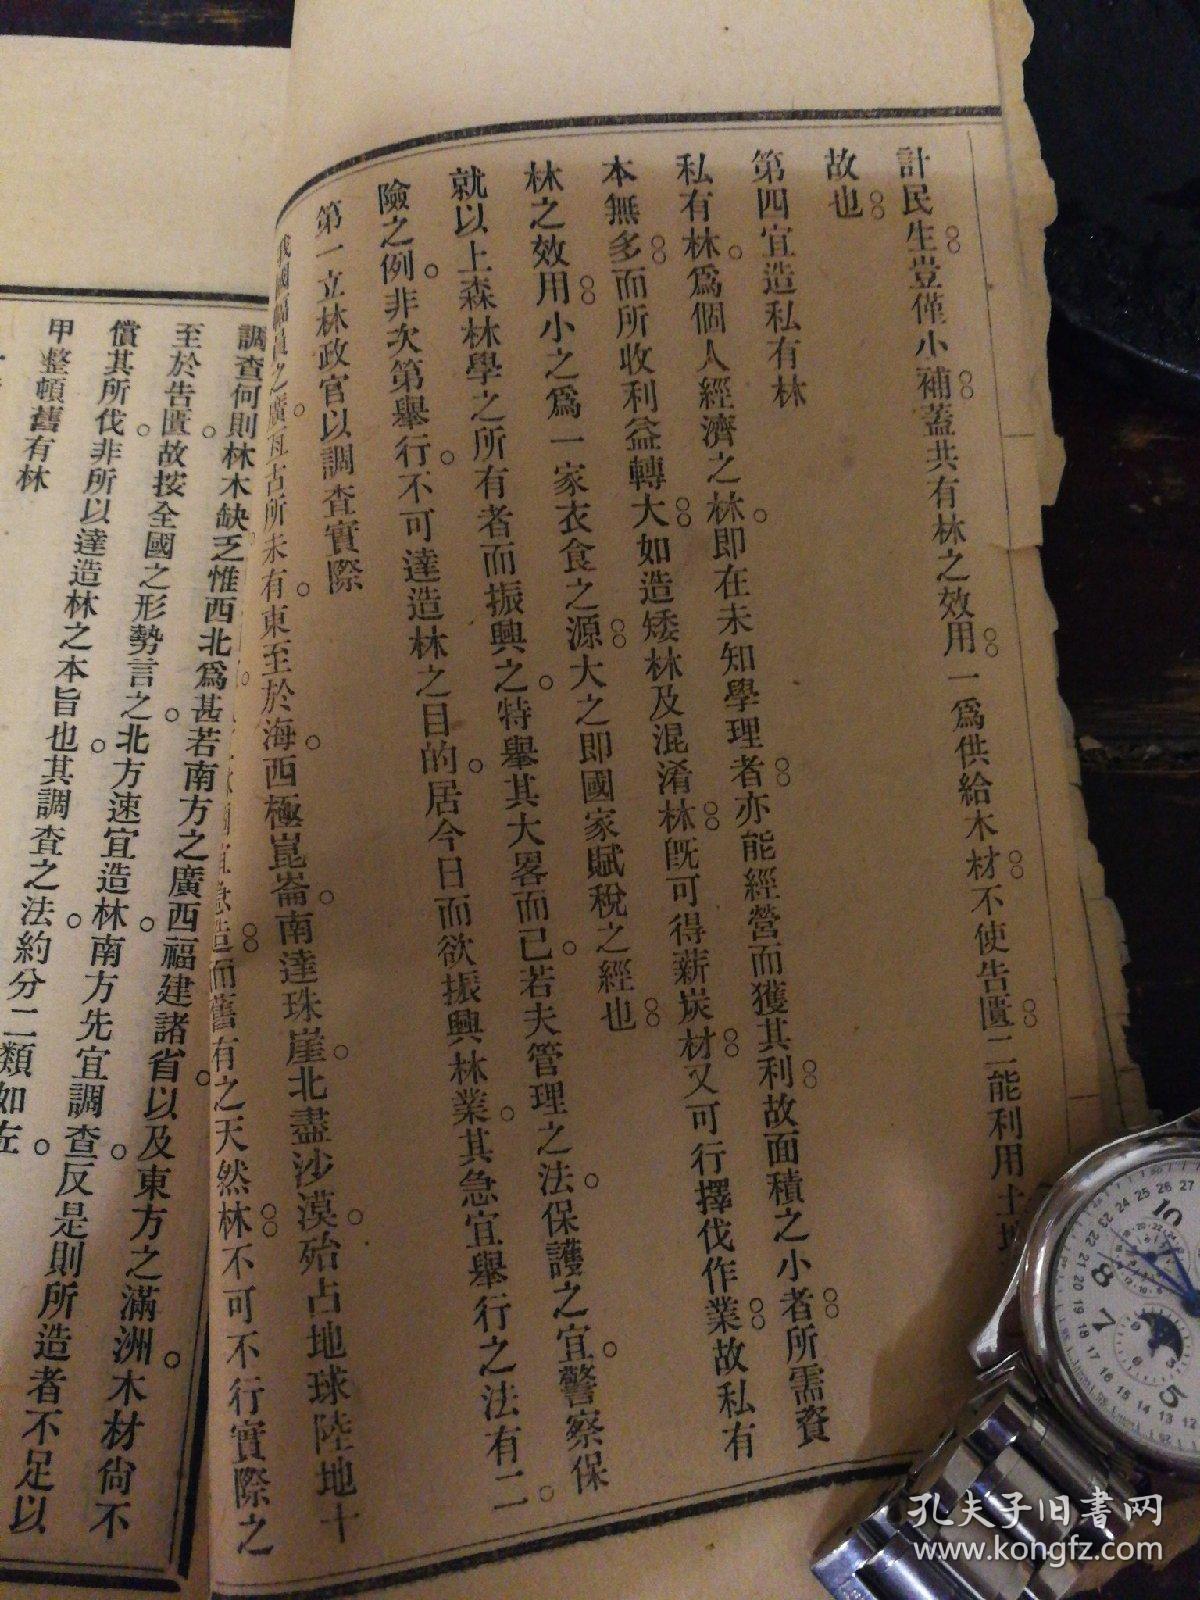 計民生豈僅小補蓋共有林之效用一爲供給木材不使告匱二能利用土地
故也
第四宜造私有林
私有林爲個人經濟之林即在未知學理者亦能經營而獲其利故面積之小者所需資
本無多而所收利益轉大如造矮林及混淆林既可得薪炭材又可行擇伐作業故私有
林之效用小之爲一家衣食之源大之即國家賦稅之經也
就以上森林學之所有者而振興之特舉其大畧而已若夫管理之法保護之宜警察保
險之例非次第舉行不可達造林之目的居今日而欲振興林業其急宜舉行之法有二
第一立林政官以調查實際
我國幅員之廣亙古所未有東至於海西極崑崙南達珠崖北盡沙漠殆占地球陸地十
宜急造而舊有之天然林不可不行實際之
調查何則林木缺乏惟西北爲甚若南方之廣西福建諸省以及東方之滿洲木材尙不
至於告匱故按全國之形勢言之北方速宜造林南方先宜調查反是則所造者不足以
償其所伐非所以達造林之本旨也其調查之法約分二類如左
甲整頓舊有林
孔夫子旧書网
www.kongfz.com